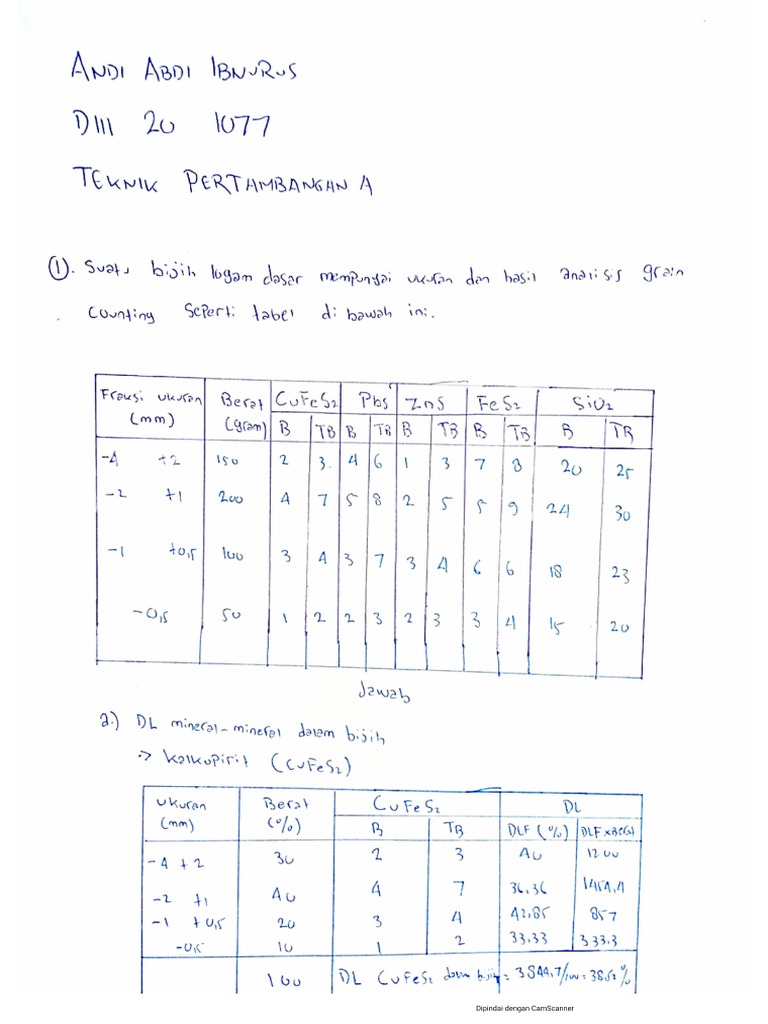 ANDI ABDI IBNURUS
DIII 20 1077
TEKNIK PERTAMBANGAN A
1. Suatu bijih logam dasar mempunyai ukuran dan hasil analisis grain
counting seperti tabel di bawah ini.
Fraksi ukuran (mm) Berat (gram) CuFeS2 Pbs ZnS FeS2 SiO2
B TB B TB B TB B TB B TB
-4 +2 150 2 3. 4 6 1 3 7 8 20 25
-2 +1 200 4 7 5 8 2 5 5 9 24 30
-1 +0,5 100 3 4 3 7 3 4 6 6 18 23
-0,5 50 1 2 2 3 2 3 3 4 15 20
Jawab
a.) DL mineral-mineral dalam bijih
-> Kalkopirit (CuFeS2)
Ukuran (mm) Berat (%) CuFeS2 DL
B TB DLF (%) DLF x Be(%)
-4 +2 30 2 3 40 1200
-2 +1 40 4 7 36,36 1454,4
-1 +0,5 20 3 4 42,85 857
-0,5 10 1 2 33,33 333,3
100 DL CuFeS2 dalam bijih = 3844,7/100 = 38,52%
Dipindai dengan CamScanner